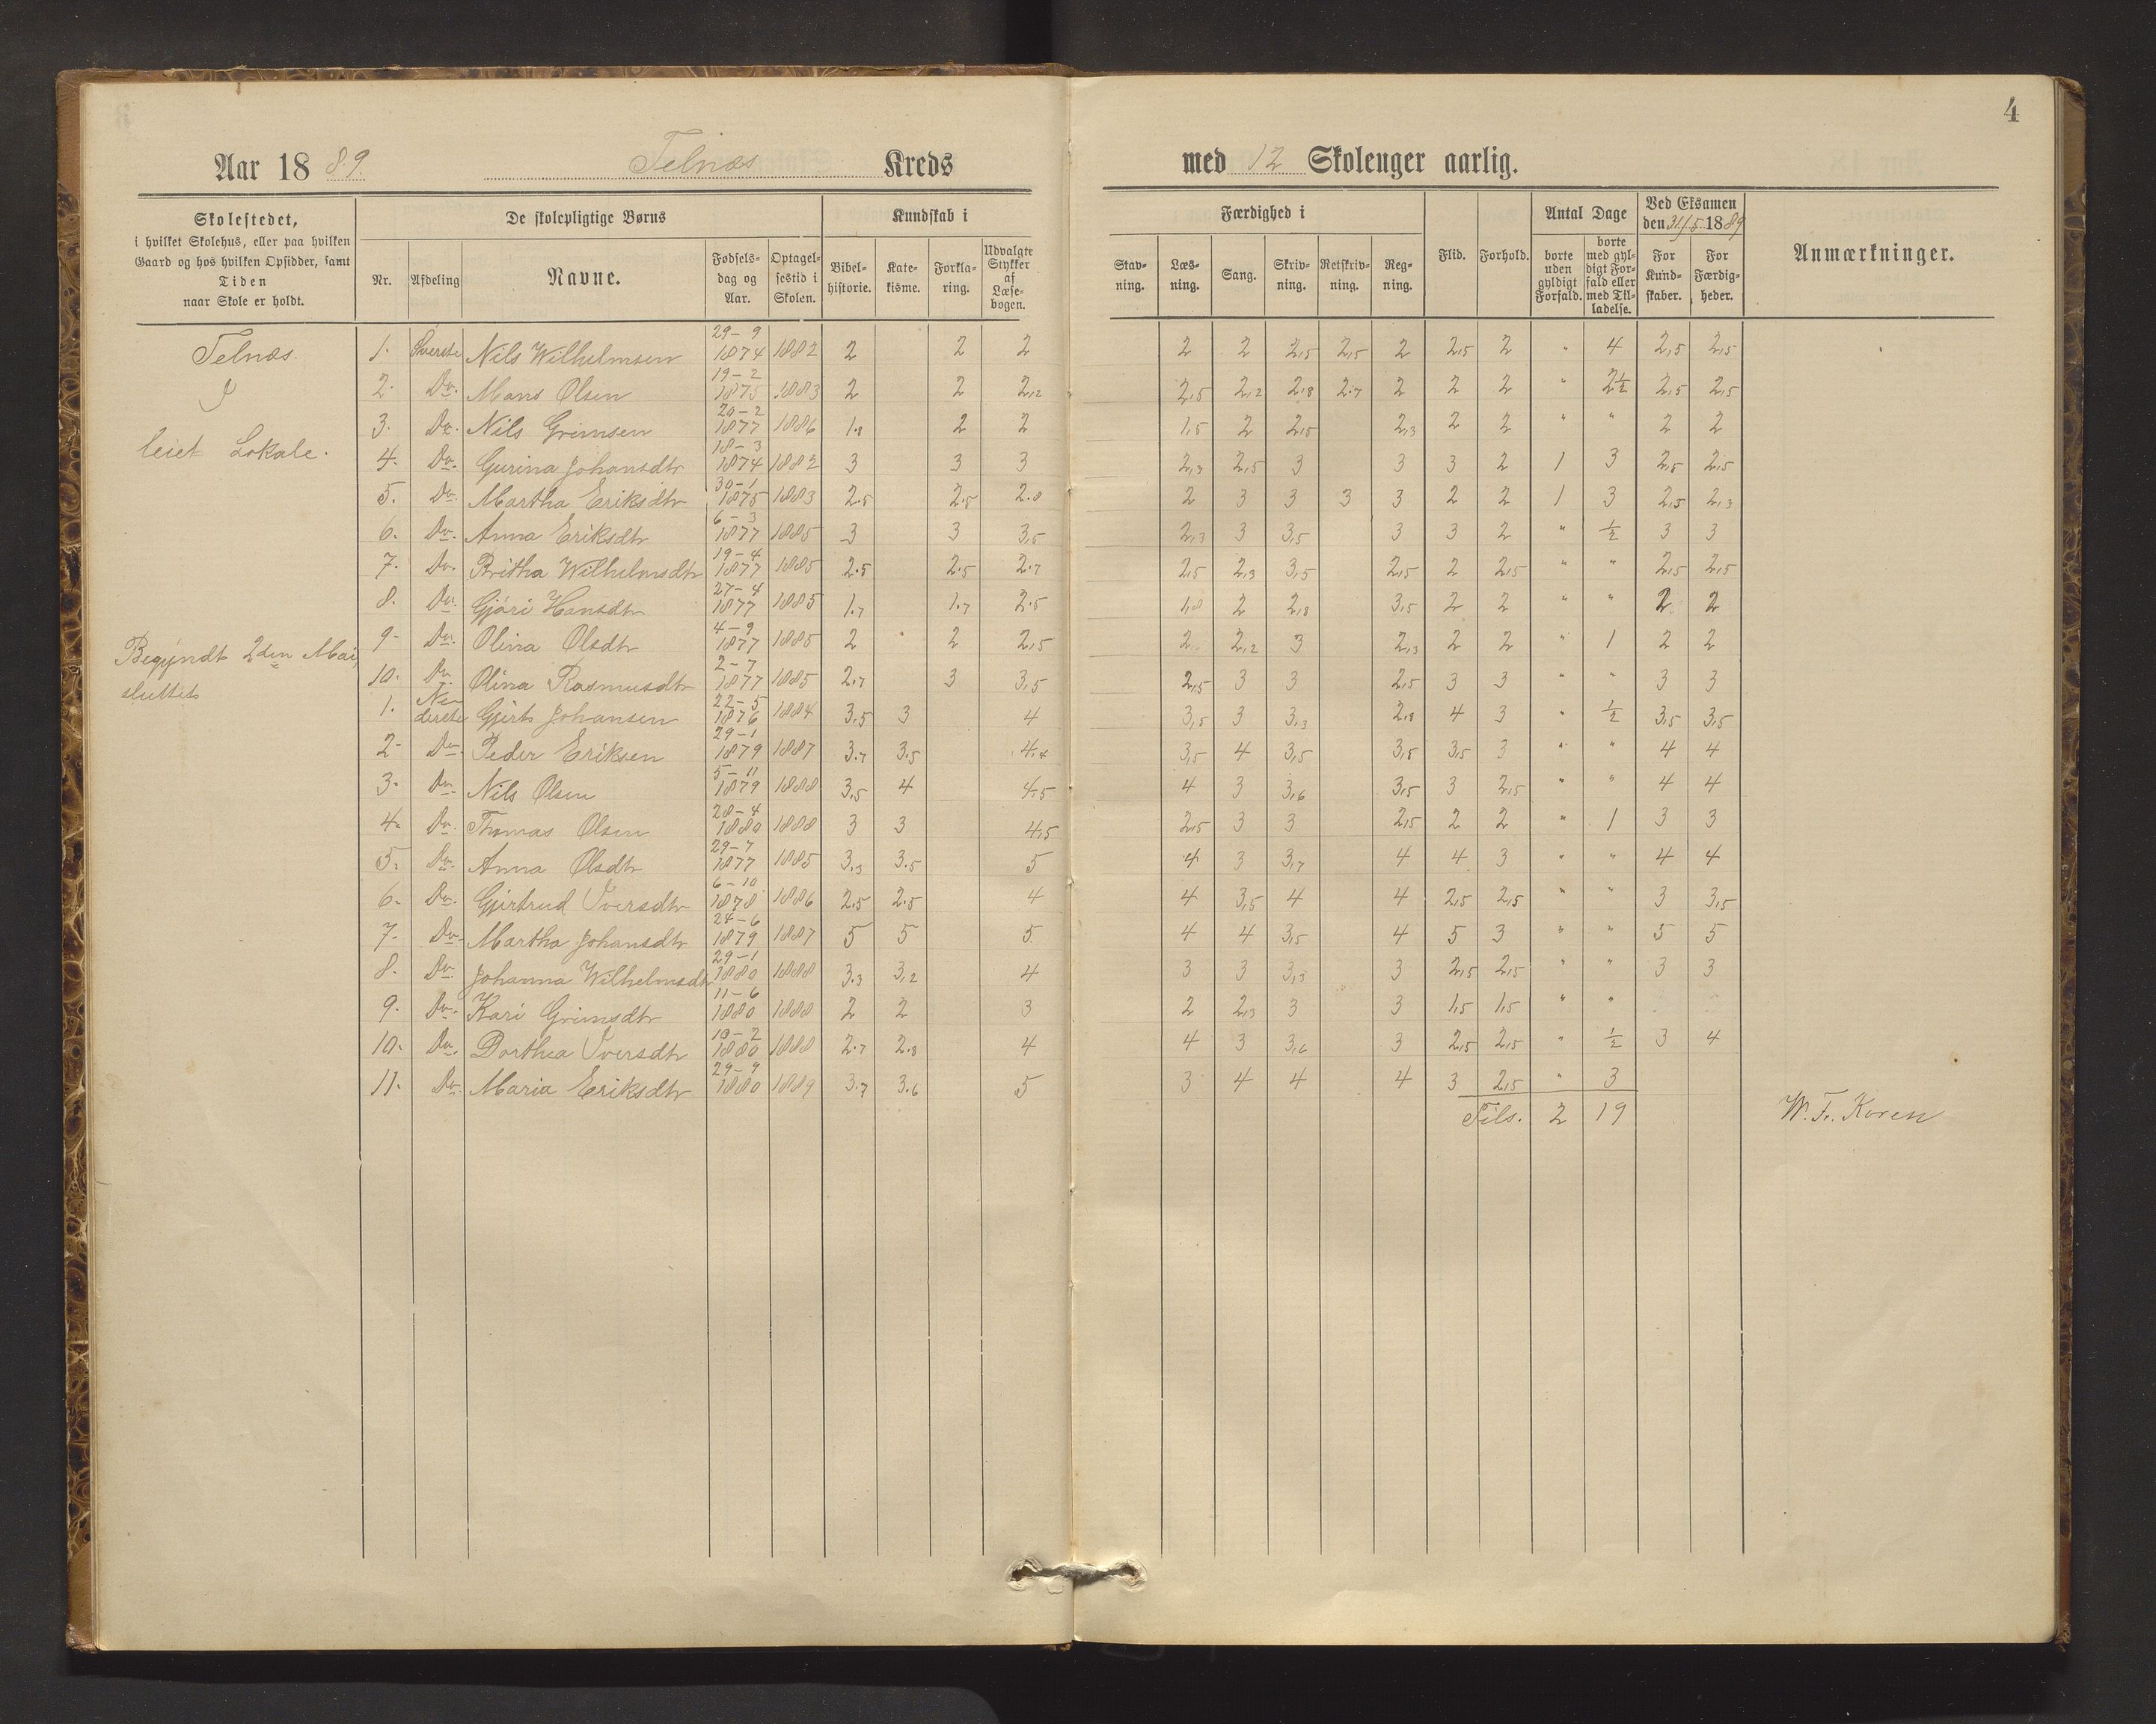 4
Aar 1889. Telnæs Kreds med 12 Skoleuger aarlig.
Skolestedet, i hvilket Skolehus, eller paa hvilken Gaard og hos hvilken Opsidder, samt Tiden naar Skole er holdt.
De skolepligtige Børns
Nr. Afdeling Navne. Fødselsdag og Aar. Optagelsestid i Skolen.
Kundskab i
Bibelhistorie. Katekisme. Forklaring. Udvalgte Stykker af Læsebogen.
Færdighed i
Stavning. Læsning. Sang. Skrivning. Retskrivning. Regning.
Flid. Forhold.
Antal Dage
borte uden gyldigt Forfald. borte med gyldigt Forfald eller med Tilladelse.
Ved Eksamen den 31/5 1889
For Kundskaber. For Færdigheder.
Anmærkninger.
Telnæs
I
leiet Lokale.
Begyndt 2den Mai,
sluttet
1. Øverste Nils Wilhelmsen 29-9 1874 1882 2 2 2 2 2 2,5 2,5 2 2,5 2 " 4 2,5 2,5
2. Do. Mons Olsen 19-2 1875 1883 2 2 2,2 2,5 2,2 2,8 2.7 2 2 2 " 2½ 2,5 2,5
3. Do. Nils Grimsen 20-2 1877 1886 1.8 2 2 1,5 2 2,5 2,3 2 2 " " 2 2
4. Do. Gurina Johansdtr 18-3 1874 1882 3 3 3 2,3 2,5 3 3 3 2 1 3 2,5 2,5
5. Do. Martha Eriksdtr 30-1 1875 1883 2.5 2.5 2.8 2 3 3 3 3 2 2 1 3 2,5 2,3
6. Do. Anna Eriksdtr 6-3 1877 1885 3 3 3,5 2,3 3 3,5 3 3 2 " ½ 3 3
7. Do. Britha Wilhelmsdtr 19-4 1877 1885 2.5 2.5 2.7 2,5 2,3 3,5 2,5 2 2,5 " " 2,5 2,5
8. Do. Gjøri Hansdtr 27-4 1877 1885 1.7 1.7 2.5 1,8 2 2,8 3,5 2 2 " " 2 2
9. Do. Olina Olsdtr 4-9 1877 1885 2 2 2,5 2 2,2 3 2,3 2 2 " 1 2 2
10. Do. Olina Rasmusdtr 2-7 1877 1885 2.7 3 3,5 2,5 3 3 2,5 3 3 " " 3 3
1. Nederste Gjert Johansen 22-5 1876 1884 3,5 3 4 3,5 3 3,3 2,8 4 3 " ½ 3,5 3,5
2. Do. Peder Eriksen 29-1 1879 1887 3.7 3.5 4,4 3,5 4 3,5 3,5 3,5 3 " " 4 4
3. Do. Nils Olsen 5-11 1879 1888 3,5 4 4.5 4 3 3,6 3,5 3 2,5 " " 4 4
4. Do. Thomas Olsen 28-4 1880 1888 3 3 4,5 2,5 3 3 2,5 2 2 " 1 3 3
5. Do. Anna Olsdtr 29-7 1877 1885 3.3 3.5 5 4 3 3,7 4 4 3 " " 4 4
6. Do. Gjertrud Iversdtr 6-10 1878 1886 2.5 2.5 4 4 3,5 4 4 2,5 2,5 " " 3 3,5
7. Do. Martha Johansdtr 24-6 1879 1887 5 5 5 4 4 3,5 4 5 3 " " 5 5
8. Do. Johanna Wilhelmsdtr 29-1 1880 1888 3.3 3,2 4 3 3 3,3 3 2,5 2,5 " " 3 3
9. Do. Kari Grimsdtr 11-6 1880 1888 2 2 3 2 2,3 3 3 1,5 1,5 " "
10. Do. Dorthea Iversdtr 10-2 1880 1888 2.7 2.8 4 4 3 3,6 3 2,5 2,5 " ½ 3 4
11. Do. Maria Eriksdtr 29-9 1880 1889 3.7 3.6 5 3 4 4 4 3 2,5 " 3
Tils. 2 19
W. Fr. Koren